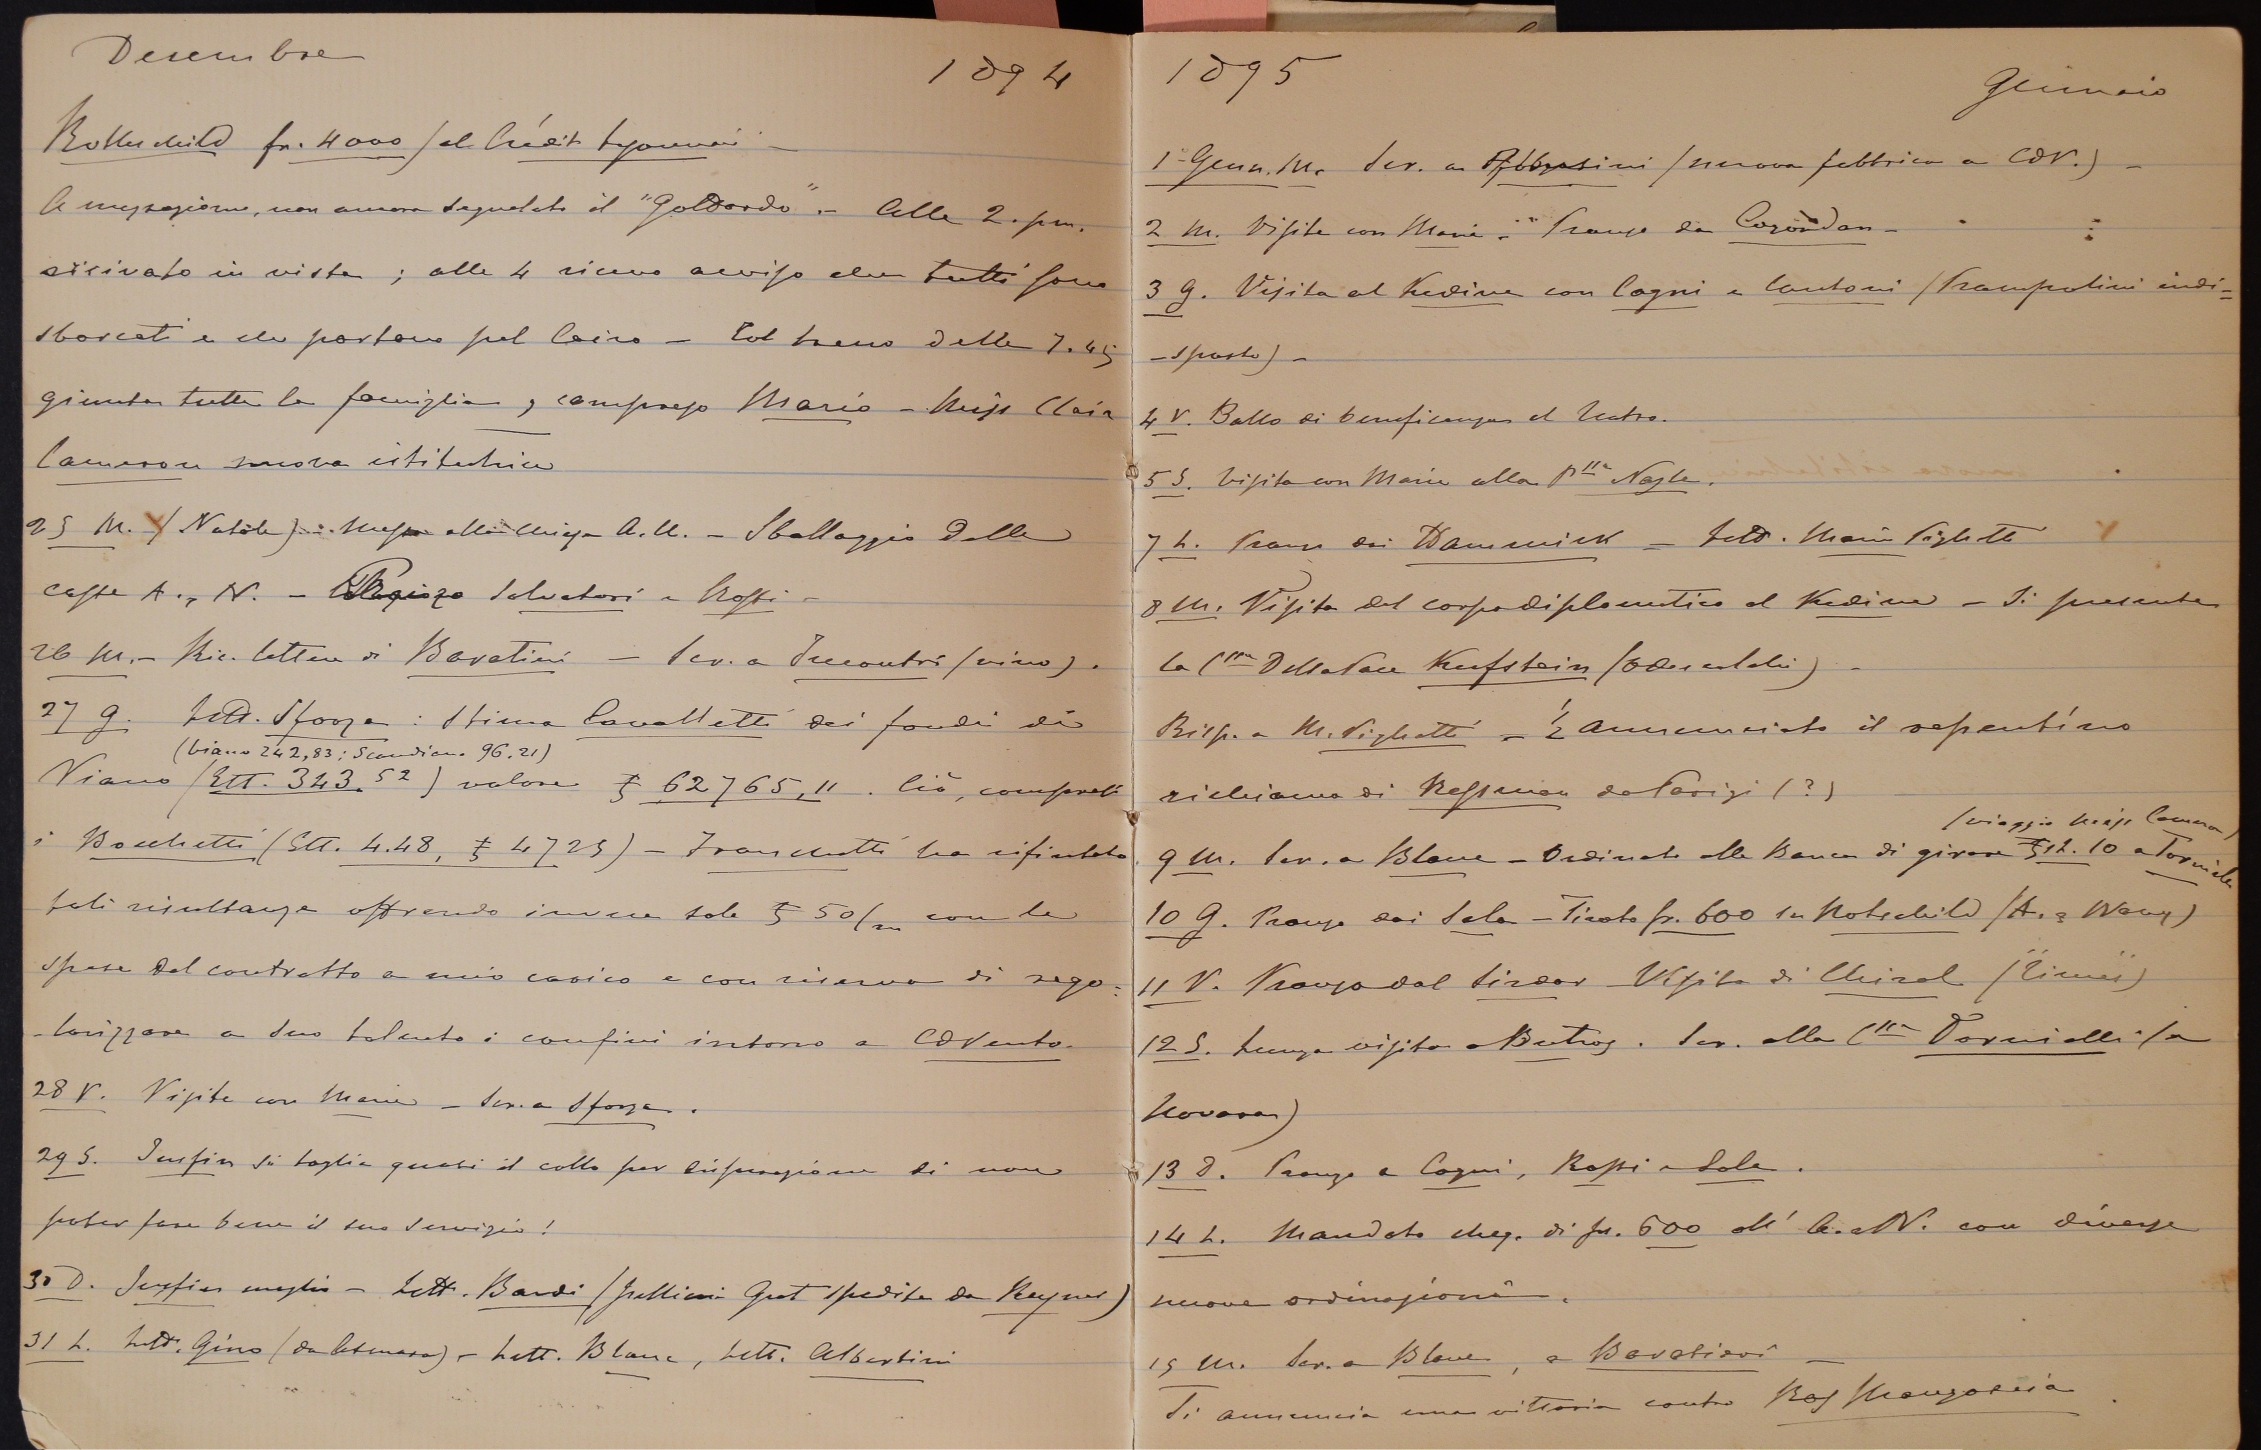 Decembre
1894
Rothschild fr. 4000 (al Crédit Lyonnais -
A mezzogiorno, non ancora segnalato il "Goltardo" - Alle 2. pm.
arrivato in vista ; alle 4 ricevo avviso che tutti sono
sbarcati e che partono pel Cairo - Col treno delle 7.45
giunta tutta la famiglia, compreso Mario - Miss Clair
Cameron nuova istitutrice
25 M. (Natale) - Messa alla Chiesa A.U. - Sballaggio delle
casse A. e N. - Pranzo Salvatori e Rossi -
26 M. - Ric. lettera di Baratieri - Scr. a Incontri (vino).
27 G. Lett. Sforza : Stima Cavalletti dei fondi di
(Viano 242,83 ; Scandiano 96.21)
Viano (Ett. 343.52) valore £ 62765,11. Ciò, compresi
i Bocchetti (Ett. 4.48, £ 4725) - Franchetti ha rifiutato
tali risultanze offrendo invece sole £ 50/m con le
spese del contratto a mio carico e con riserva di rego=
-larizzare a suo talento i confini intorno a CDVento.
28 V. Visite con Maria - Scr. a Sforza.
29 S. Si taglia quasi il collo per disperazione di non
poter fare bene il suo servizio !
30 D. meglio - Lett. Bardi ( spedite da )
31 L. Lett. Gino (da ) - Lett. Blanc, Lett. Albertini
1895
Gennaio
1 Genn. M. Scr. a (nuova fabbrica a CDV.) -
2 M. Visite con Maria - Pranzo da Cogordan -
3 G. Visita al Kedive con Cagni e Cantoni (Trampolini indi=
-sposto) -
4 V. Ballo di beneficenza al Teatro.
5 S. Visita con Maria alla P.ssa Nazle.
7 L. Pranzo dai - Lett. Maria Pigliatti
8 M. Visita del corpo diplomatico al Kedive - Si presenta
la C.ssa Dellatace Kufstein (Odescalchi) -
Risp. a M. Pigliatti - È annunciato il repentino
richiamo di Ressman da Parigi (?)
(viaggio Miss Cameron)
9 M. Scr. a Blanc - Ordinato alla Banca di girare £st. 10 a Tornielli
10 G. Pranzo dai Sala - Tirato fr. 600 su Rotschild (A. e Navy)
11 V. Pranzo dal Sirdar - Visita di Chirol ("Times")
12 S. Lunga visita a Butros. Scr. alla C.ssa Tornielli (a
Novara)
13 D. Pranzo a Cagni, Rossi e Sala.
14 L. Mandato cheq. di fr. 600 all' A. e N. con diverse
nuove ordinazioni.
15 M. Scr. a Blanc, a Baratieri -
Si annuncia una vittoria contro Ras Mangascia